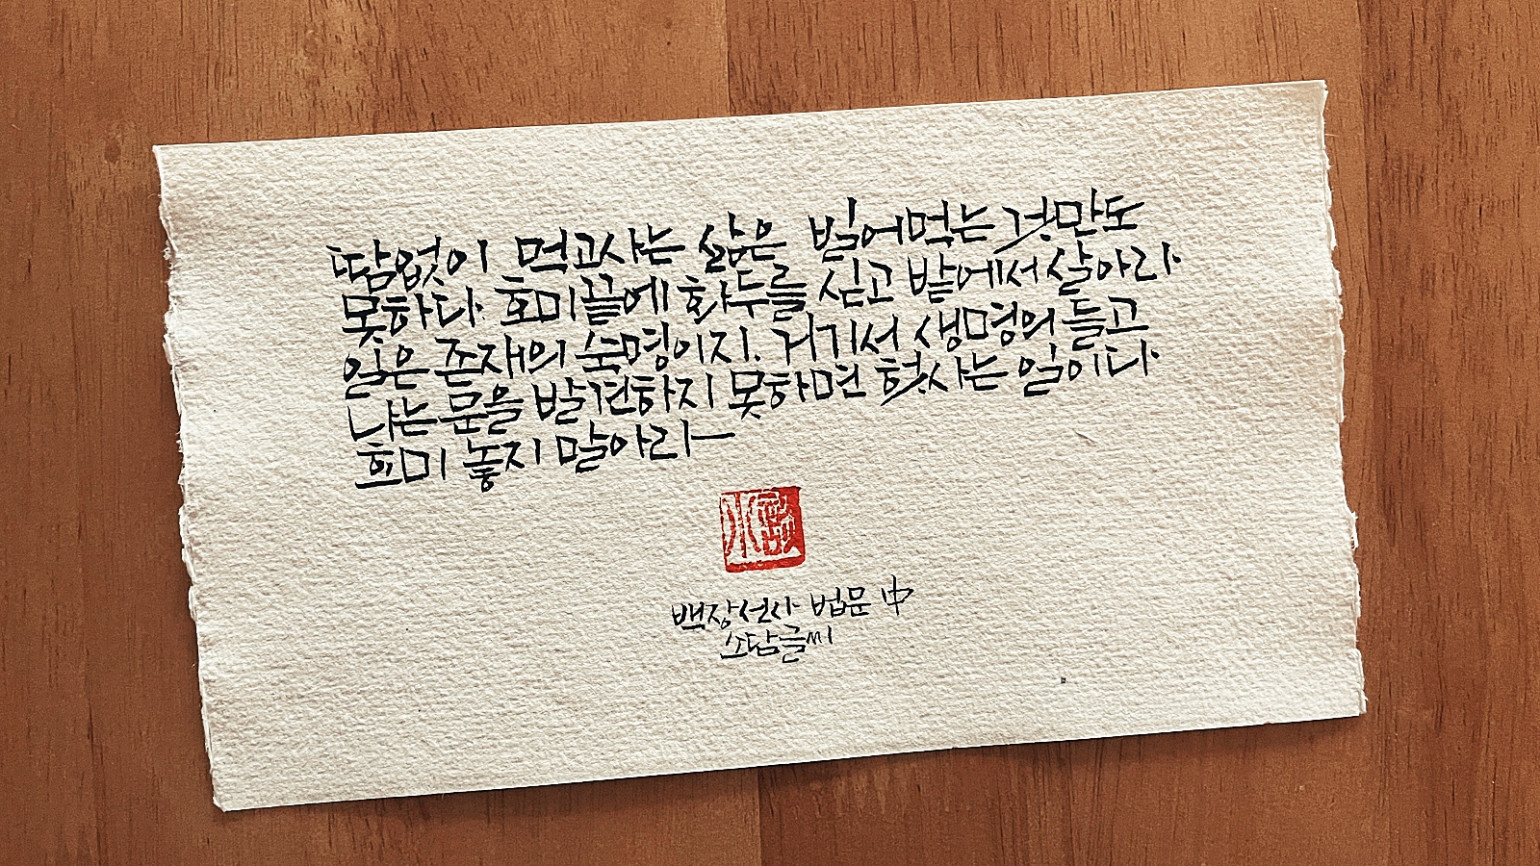 땀없이 먹고사는 삶은 빌어먹는 것만도
못하다. 호미끝에 화두를 싣고 밭에서 살아라.
일은 존재의 숙명이지. 거기서 생명의 들고
나는 문을 발견하지 못하면 헛사는 일이다.
호미 놓지 말아라—
백장선사 법문 中
소담글씨